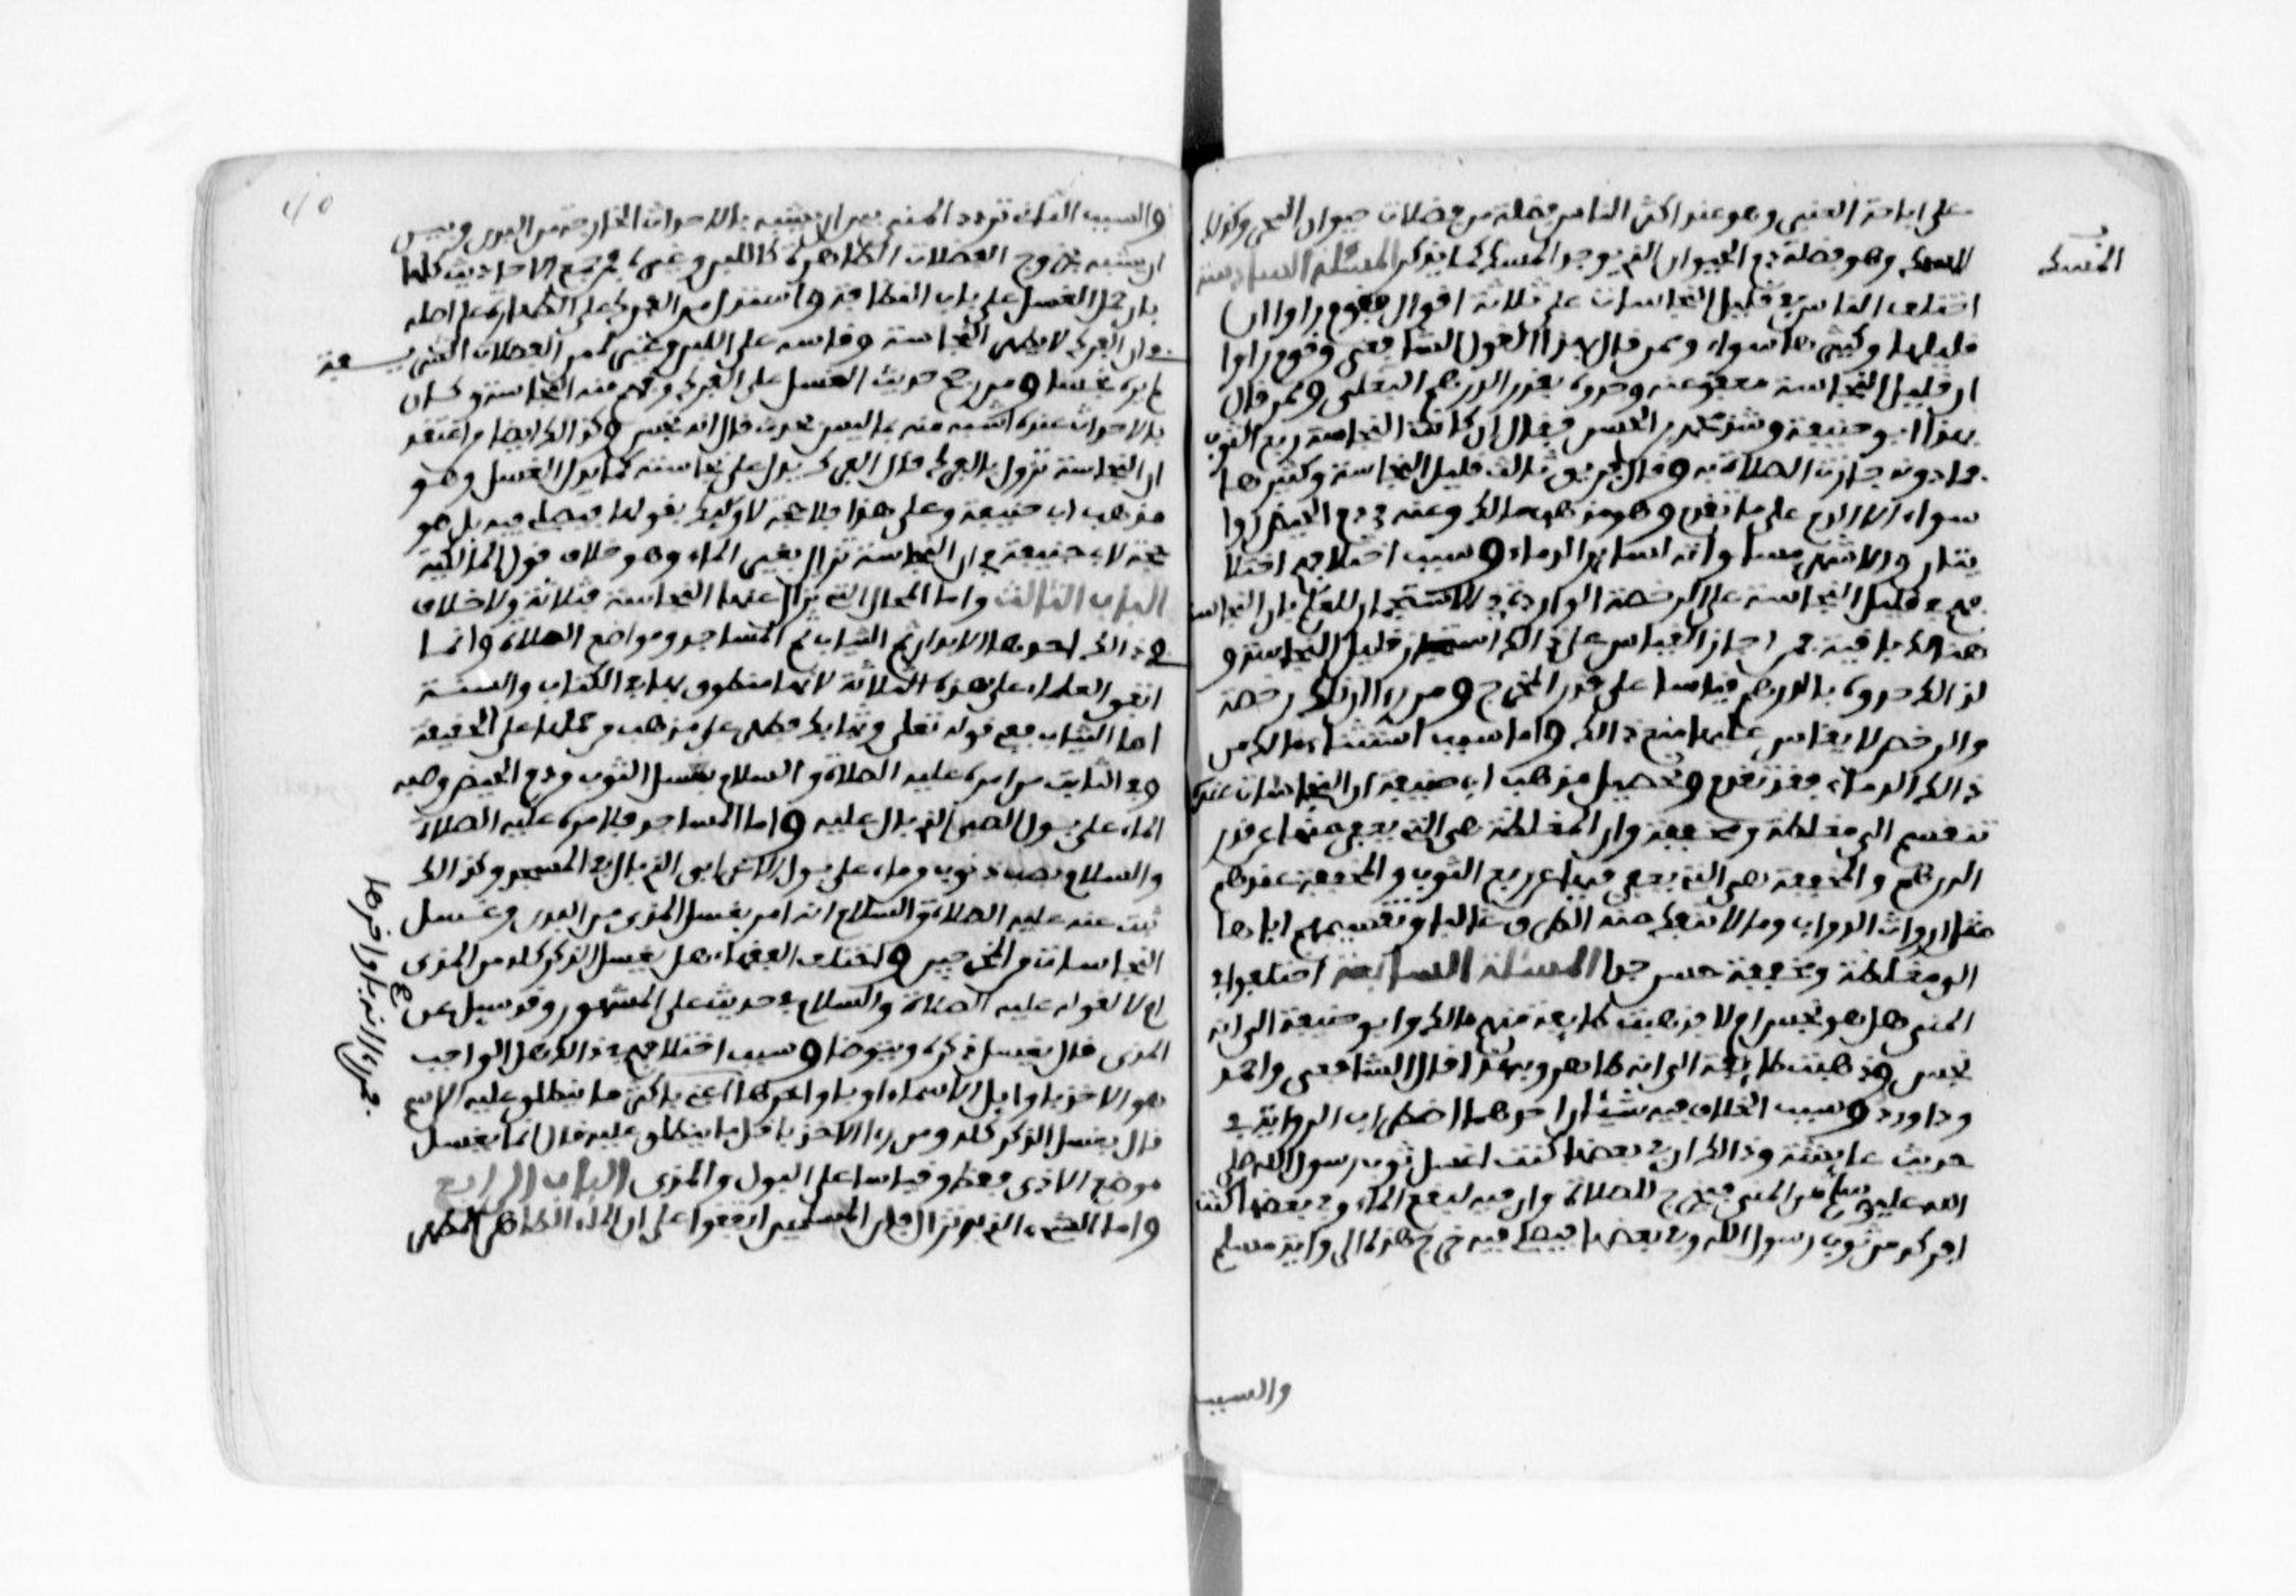 على اباحة العنبر وهو عند اكثر الناس فضلة من فضلات حيوان البحر وكذلك
المسك وهو فضلة دم الحيوان الذي يوجد المسك كما يذكر المسئلة السادسة
المسك
اختلف الناس في قليل النجاسات على ثلاثة اقوال فقوم راوا ان
قليلها وكثيرها سواء وممن قال بهذا القول الشافعي وقوم راوا
ان قليل النجاسة معفو عنه وحدوه بقدر الدرهم البغلي وممن قال
بهذا ابو حنيفة وشذ محمد بن الحسن فقال ان كانت النجاسة ربع الثوب
فما دونه جازت الصلاة به وقال فريق ثالث قليل النجاسة وكثيرها
سواء الا الدم على ما تقدم وهو مذهب مالك وعنه في دم الحيض روا
يتان والاشهر مساواته لسائر الدماء وسبب اختلافهم اختلا
فهم في قليل النجاسة على الرخصة الواردة في الاستجمار للعلم بان النجاسة
هنالك باقية فمن اجاز القياس على ذالك استجاز قليل النجاسة و
لذالك حدوه بالدرهم قياسا على قدر المخرج ومن راى ان تلك رخصة
والرخص لا يقاس عليها منع ذالك واما سبب استثناء مالك من
ذالك الدماء فقد تقدم وتحصيل مذهب ابي حنيفة ان النجاسات عنده
تنقسم الى مغلظة ومخففة وان المغلظة هي التي يعفى منها عن قدر
الدرهم والمخففة هي التي يعفى فيها عن ربع الثوب والمخففة عندهم
مثل ارواث الدواب وما لا تنفك منه الطرق غالبا وتقسيمهم اياها
الى مغلظة ومخففة حسن جدا المسئلة السابعة اختلفوا في
المني هل هو نجس ام لا فذهبت طائفة منهم مالك وابو حنيفة الى انه
نجس وذهبت طائفة الى انه طاهر وبهذا قال الشافعي واحمد
وداوود وسبب الخلاف فيه شيئان احدهما اضطراب الرواية في
حديث عايشة وذالك ان في بعضها كنت اغسل ثوب رسول الله صلى
الله عليه وسلم من المني فيخرج للصلاة وان فيه لبقع الماء وفي بعضها كنت
افركه من ثوب رسول الله وفي بعضها فيصلي فيه خرج هذه الرواية مسلم
والسبب
والسبب الثاني تردد المني بين ان يشبه بالاحداث الخارجة من البدن وبين
ان يشبه بخروج الفضلات الطاهرة كاللبن وغيره فمن جمع الاحاديث كلها
بان حمل الغسل على باب النظافة واستدل من الفرك على الطهارة على اصله
في ان الفرك لا يطهر النجاسة وقاسه على اللبن وغيره من الفضلات الشريفة
لم يره نجسا ومن رجح حديث الغسل على الفرك وفهم منه النجاسة وكان
بالاحداث عنده اشبه منه بما ليس بحدث قال انه نجس وكذالك ايضا من اعتقد
ان النجاسة تزول بالفرك قال الفرك يدل على نجاسته كما يدل الغسل وهو
مذهب ابي حنيفة وعلى هذا فلا حجة لاوليك بقولها فيصلي فيه بل هو
حجة لابي حنيفة في ان النجاسة تزال بغير الماء وهو خلاف قول المالكية
الباب الثالث واما المحال التي تزال عنها النجاسة فثلاثة ولا خلاف
في ذالك احدها الابدان ثم الثياب ثم المساجد ومواضع الصلاة وانما
اتفق العلماء على هذه الثلاثة لانها منطوق بها في الكتاب والسنة
اما الثياب ففي قوله تعلى وثيابك فطهر على مذهب من حملها على الحقيقة
وفي الثابت من امره عليه الصلاة والسلام بغسل الثوب من دم الحيض وصبه
الماء على بول الصبي الذي بال عليه واما المساجد فلامره عليه الصلاة
والسلام بصب ذنوب من ماء على بول الاعرابي الذي بال في المسجد وكذالك
ثبت عنه عليه الصلاة والسلام انه امر بغسل المذي من البدن وغسل
النجاسات من المخرجين واختلف الفقهاء هل يغسل الذكر كله من المذي
ام لا لقوله عليه الصلاة والسلام في حديث علي المشهور وقد سيل عن
المذي قال يغسل ذكره ويتوضا وسبب اختلافهم في ذالك هل الواجب
هو الاخذ باوايل الاسماء او باواخرها اعني باكثر ما ينطلق عليه الاسم
فمن راى انه باواخرها
قال يغسل الذكر كله ومن راى الاخذ باقل ما ينطلق عليه قال انما يغسل
موضع الاذى فقط وقياسا على البول والمذي الباب الرابع
واما الشيء الذي به تزال فان المسلمين اتفقوا على ان الماء الطاهر المطهر